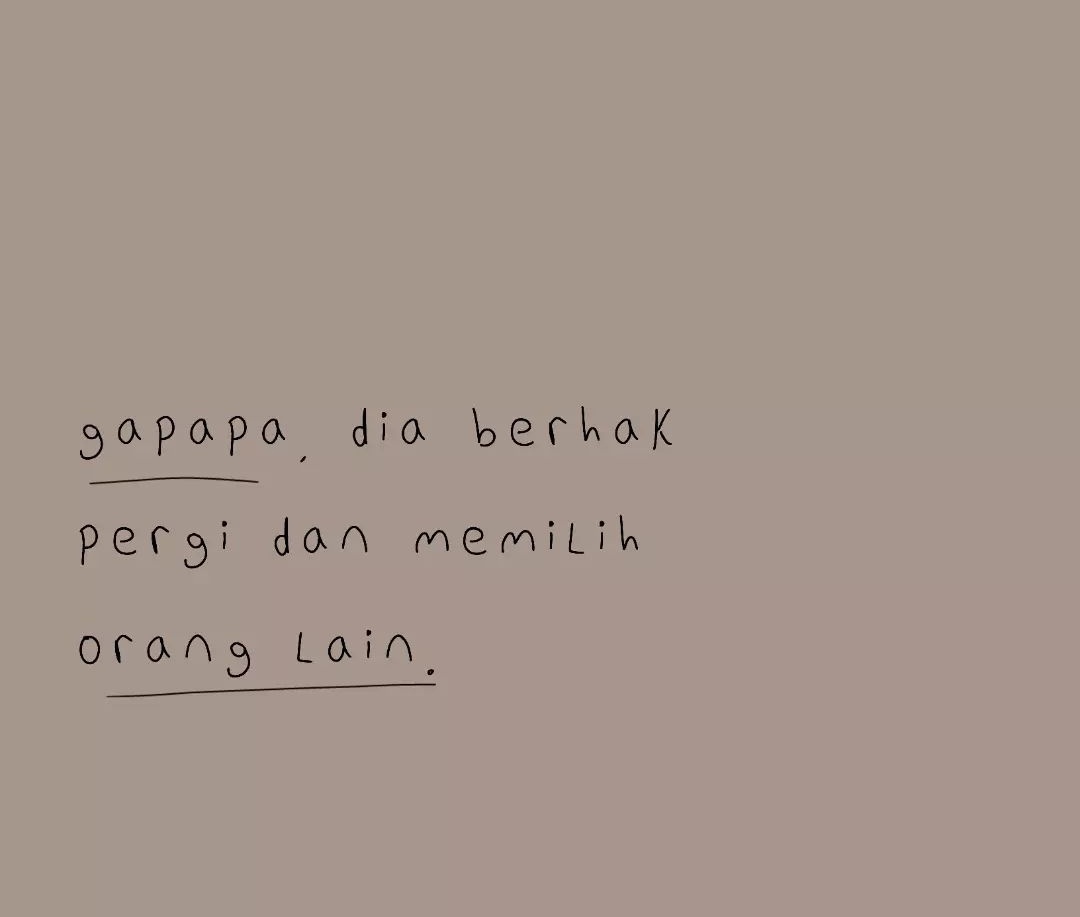 gapapa, dia berhak
pergi dan memiLih
orang Lain.